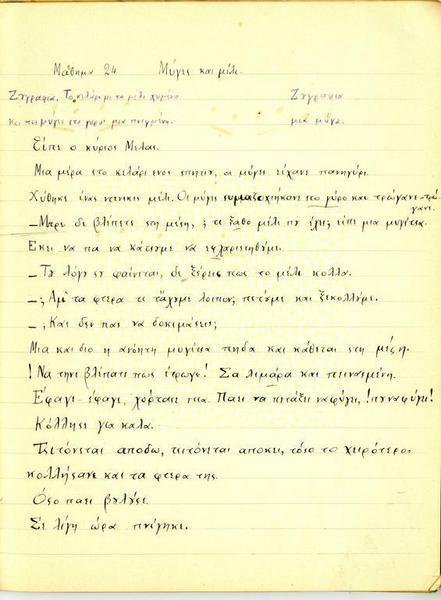 Μάθημα 24 Μύγες και μέλι.
Ζυγραφια. Το κελάρι με το μέλι χυμένο Ζυγραφια
και τις μύγες στο γύρο· μια πνιγμένη. μια μύγα.
Είπε ο κύριος Μελας.
Μια μέρα στο κελάρι ενος σπητιυ, οι μύγες είχανε πανηγύρι.
Χύθηκε ένας ντενεκες μέλι. Οι μύγες συμμαζοχτήκανε στο γύρο και τρώγανε-τρώ
γανε.
– Μπρε δε βλέπετε στη μέση, ; τι ξαθο μέλι πυ έχει; είπε μια μυγίτσα.
Εκει να πα να κάτσυμε να ευχαριστηθύμε.
– Τυ λόγυ συ φαίνεται, δε ξέρεις πως το μέλι κολλα.
– ; Αμ τα φτερα τι τάχυμε λοιπον; πετύμε και ξεκολλύμε.
– ; Και δεν πας να δοκιμάσεις;
Μια και διο η ανόητη μυγίτσα πηδα και κάθεται στη μέση.
! Να την βλέπατε πως έτρωγε! Σα λιμάρα και πεινασμένη.
Εφαγε-έφαγε, χόρτασε πια. Παει να πετάξει να φύγει, ! πυ να φύγει!
Κόλλησε για καλα.
Τσιτόνεται αποδω, τσιτόνεται αποκει, τόσο το χειρότερο·
κολλήσανε και τα φτερα της.
Όσο παει βυλύσε.
Σε λίγη ώρα πνίγηκε.